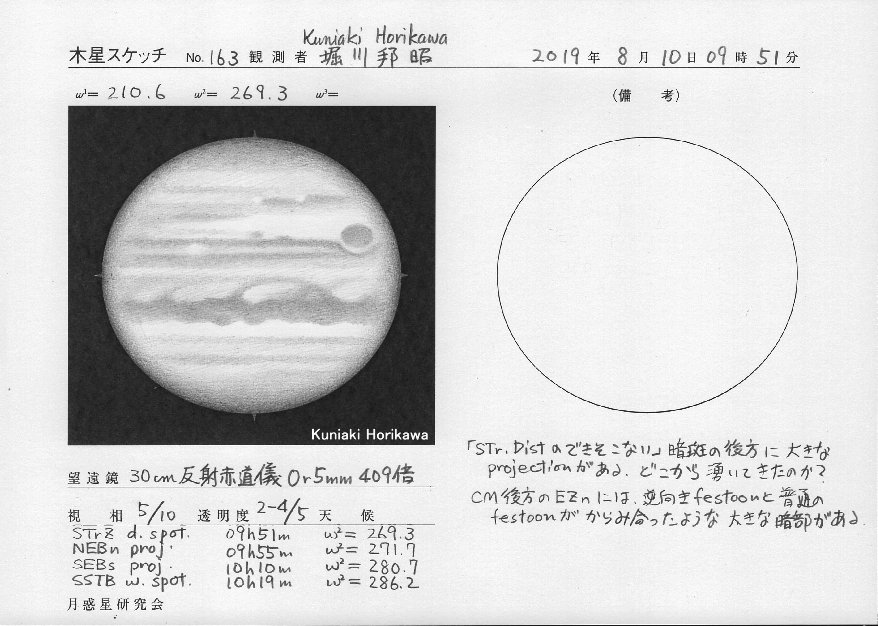 Kuniaki Horikawa
木星スケッチ No. 163 観測者 堀川邦昭 2019年 8月 10日 09時 51分
ω¹= 210.6 ω²= 269.3 ω³=
(備 考)
Kuniaki Horikawa
「STr.Distのできそこない」暗斑の後方に大きな
projectionがある。どこから湧いてきたのか?
CM後方のEZnには、逆向きfestoonと普通の
festoonがからみ合ったような大きな暗部がある。
望遠鏡 30cm反射赤道儀 Or5mm 409倍
視 相 5/10 透明度 2-4/5 天 候
STrZ d. spot. 09h51m ω²= 269.3
NEBn proj. 09h55m ω²= 271.7
SEBs proj. 10h10m ω²= 280.7
SSTB w. spot. 10h19m ω²= 286.2
月惑星研究会